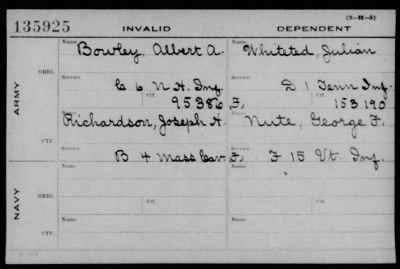 (3-H-3)
135925 INVALID DEPENDENT
Name Bowley, Albert A. Name Whiteted, Julian
ORIG.
Service C 6 N.H. Inf. Service D 1 Tenn Inf.
ARMY
Ctf. 95386, F. Ctf. 153190
Name Richardson, Joseph A. Name Nute, George F.
CTF.
Service B 4 Mass Cav, F. Service F 15 Vt. Inf.
NAVY
Name Name
ORIG.
Service Ctf. Service Ctf.
Name Name
CTF.
Service Service